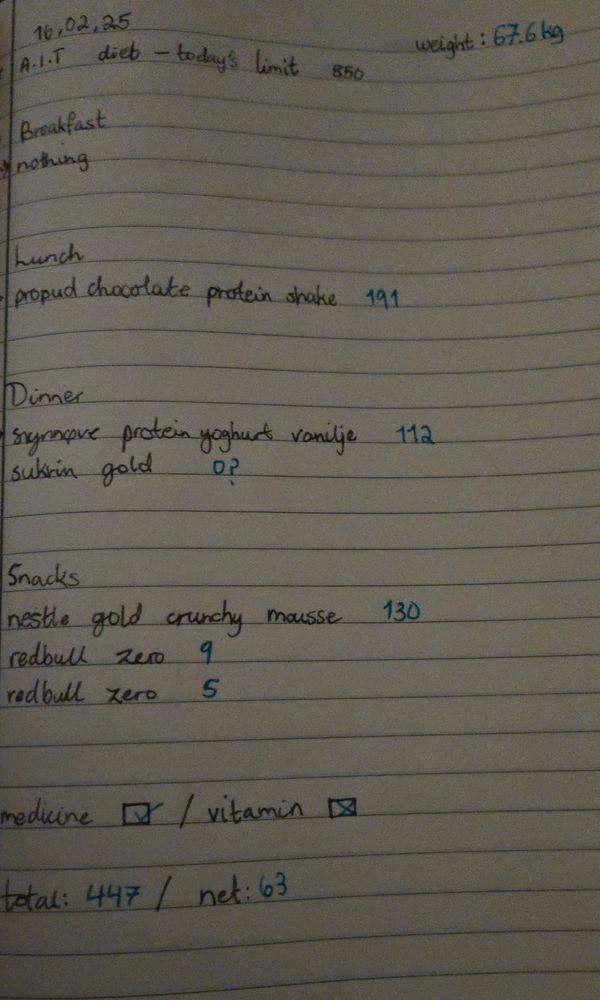 16,02,25
weight: 67.6 kg
A.I.T diet - today's limit 850
Breakfast
nothing
Lunch
propud chocolate protein shake 191
Dinner
synnøve protein yoghurt vanilje 112
sukrin gold 0?
Snacks
nestle gold crunchy mousse 130
redbull zero 9
redbull zero 5
medicine ☑ / vitamin ☒
total: 447 / net: 63